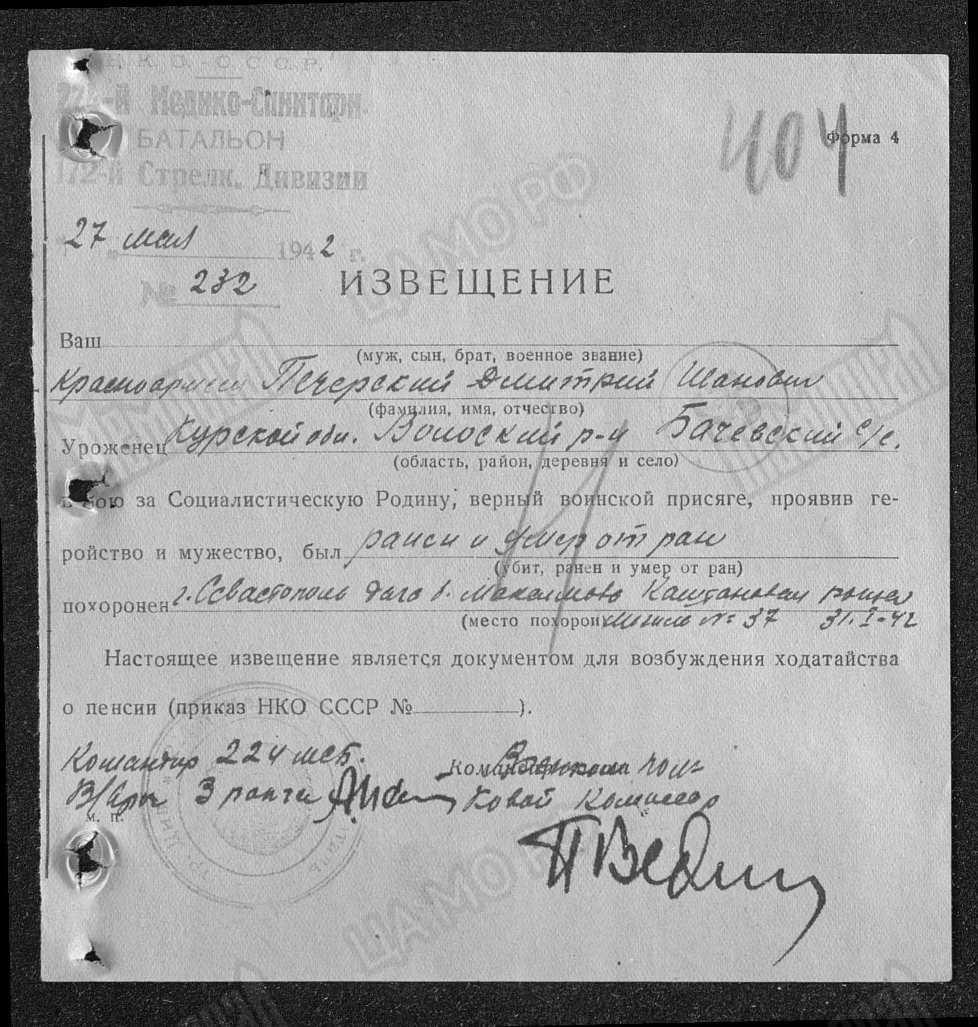 Н. К. О. С. С. С. Р.
224-й Медико-Санитарн.
БАТАЛЬОН
172-й Стрелк. Дивизии
404
Форма 4
27 мая 1942 г.
№ 232
ИЗВЕЩЕНИЕ
Ваш
(муж, сын, брат, военное звание)
Красноармеец Печерский Дмитрий
(фамилия, имя, отчество)
Уроженец Курской обл. р-н Бачевский с/с.
(область, район, деревня и село)
в бою за Социалистическую Родину, верный воинской присяге, проявив ге-
ройство и мужество, был ранен и умер от ран
(убит, ранен и умер от ран)
похоронен г. Севастополь дача б. Максимова Каштановая
(место похорон Могила № 37 31.I-42
Настоящее извещение является документом для возбуждения ходатайства
о пенсии (приказ НКО СССР № ).
Командир 224 мсб. Командир
В/врач 3 ранга ковой комиссар
м. п.
ЦАМО РФ
ЦАМО РФ